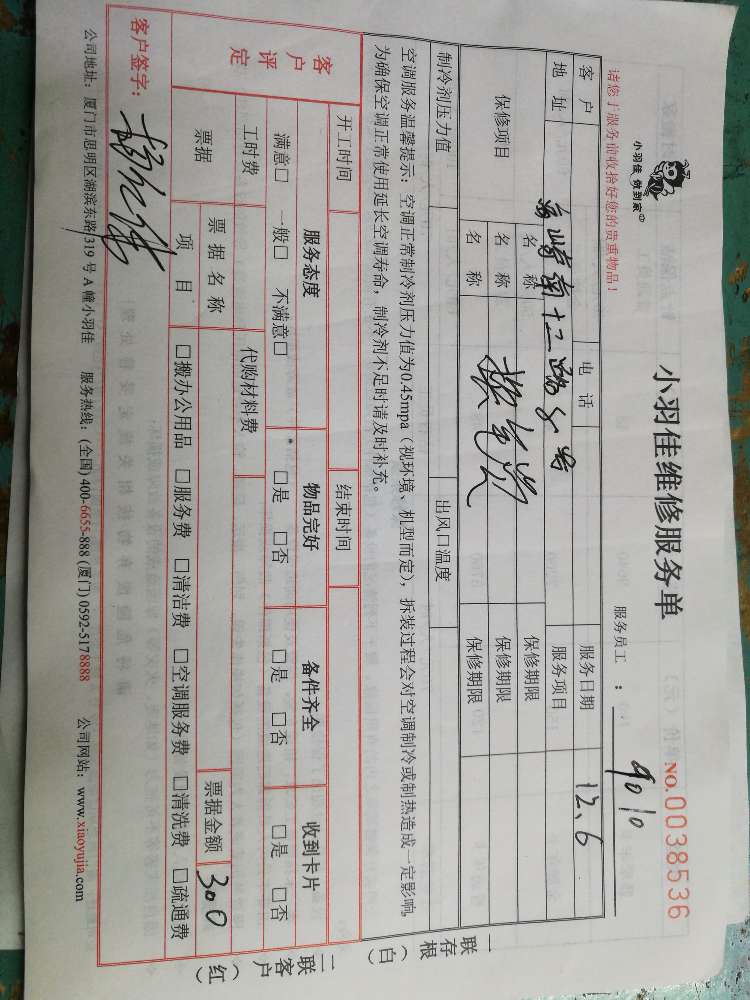 小羽佳 做到家®
小羽佳维修服务单
NO.0038536
请您于服务前收拾好您的贵重物品！
服务员工 ： 9010
客户 电话 服务日期 12.6
地址 高崎南十二路8号 服务项目
保修项目 名称 保修期限
名称 保修期限
名称 保修期限
制冷剂压力值 出风口温度
空调服务温馨提示：空调正常制冷剂压力值为0.45mpa（视环境、机型而定），拆装过程会对空调制冷或制热造成一定影响。
为确保空调正常使用延长空调寿命，制冷剂不足时请及时补充。
开工时间 结束时间
客户评定 服务态度 物品完好 备件齐全 收到卡片
满意□ 一般□ 不满意□ □是 □否 □是 □否 □是 □否
工时费 代购材料费
票据 票据名称 票据金额 300
项目 □搬办公用品 □服务费 □清洁费 □空调服务费 □清洗费 □疏通费
客户签字：
公司地址：厦门市思明区湖滨东路319号A幢小羽佳 服务热线：(全国) 400-6655-888 (厦门) 0592-5178888 公司网站：www.xiaoyujia.com
一联存根（白）
二联客户（红）